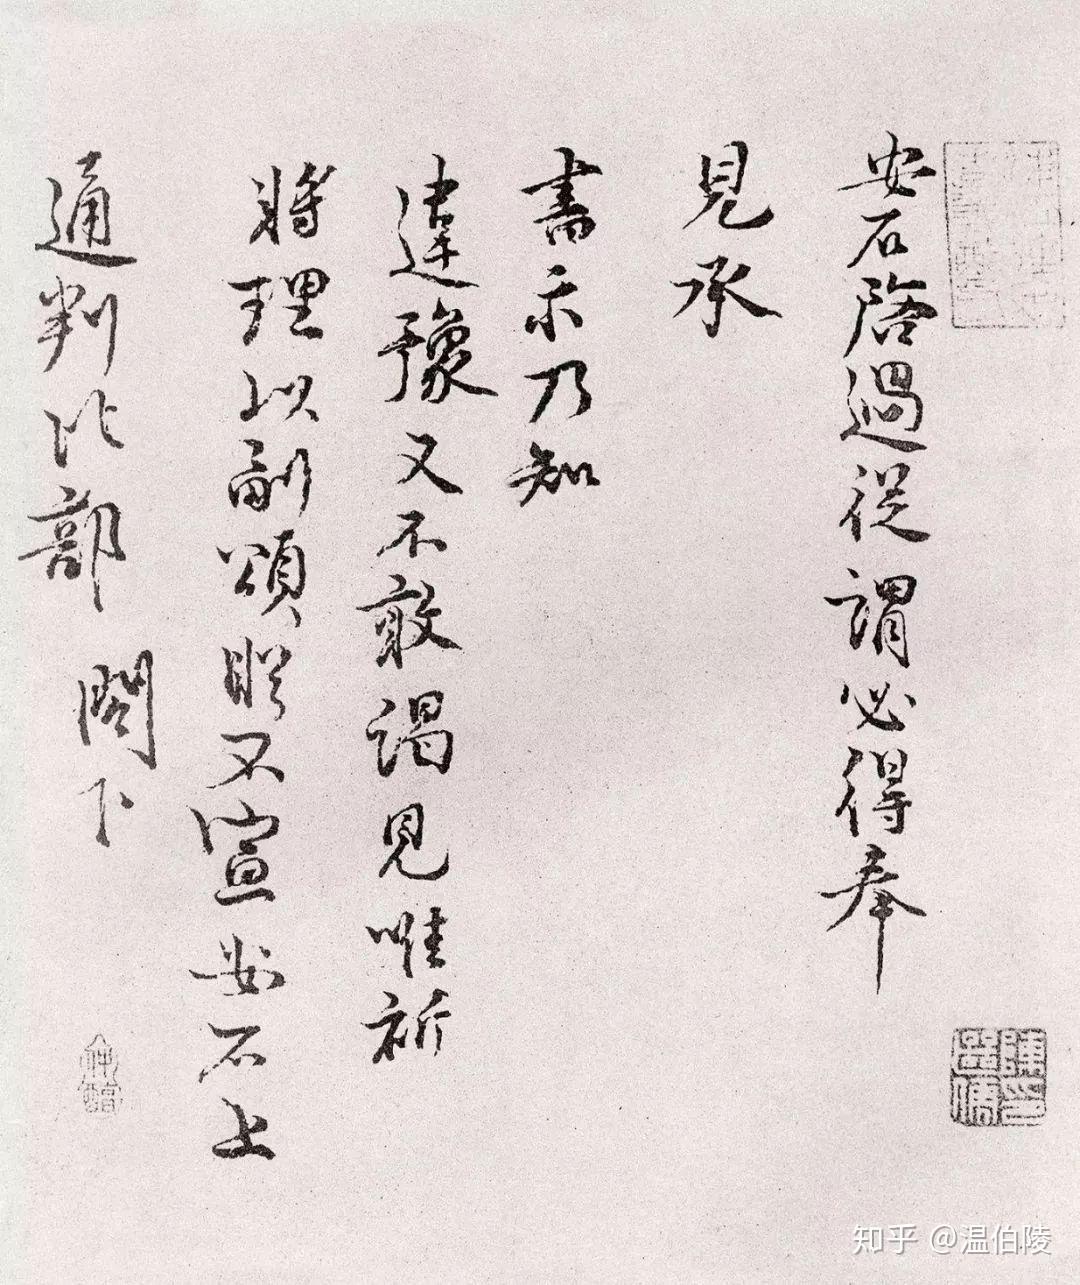 安石啓過從謂必得奉
見承
書示乃知
違豫又不敢謁見唯祈
將理以副頌瞻不宣安石上
通判比部 閣下
知乎 @温伯陵